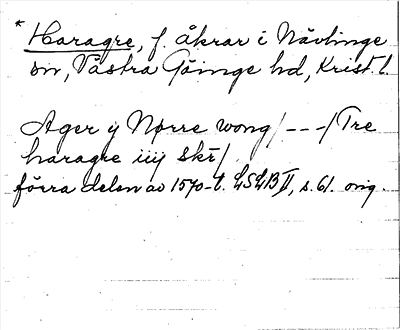 * Haragre, f. åkrar i Nävlinge
sn, Västra Göinge hd, Krist. l.
Ager y Nørre wong/ - - -/ Tre
haragre iiij skr/
förra delen av 1570-t. LSLB II, s. 61. orig.